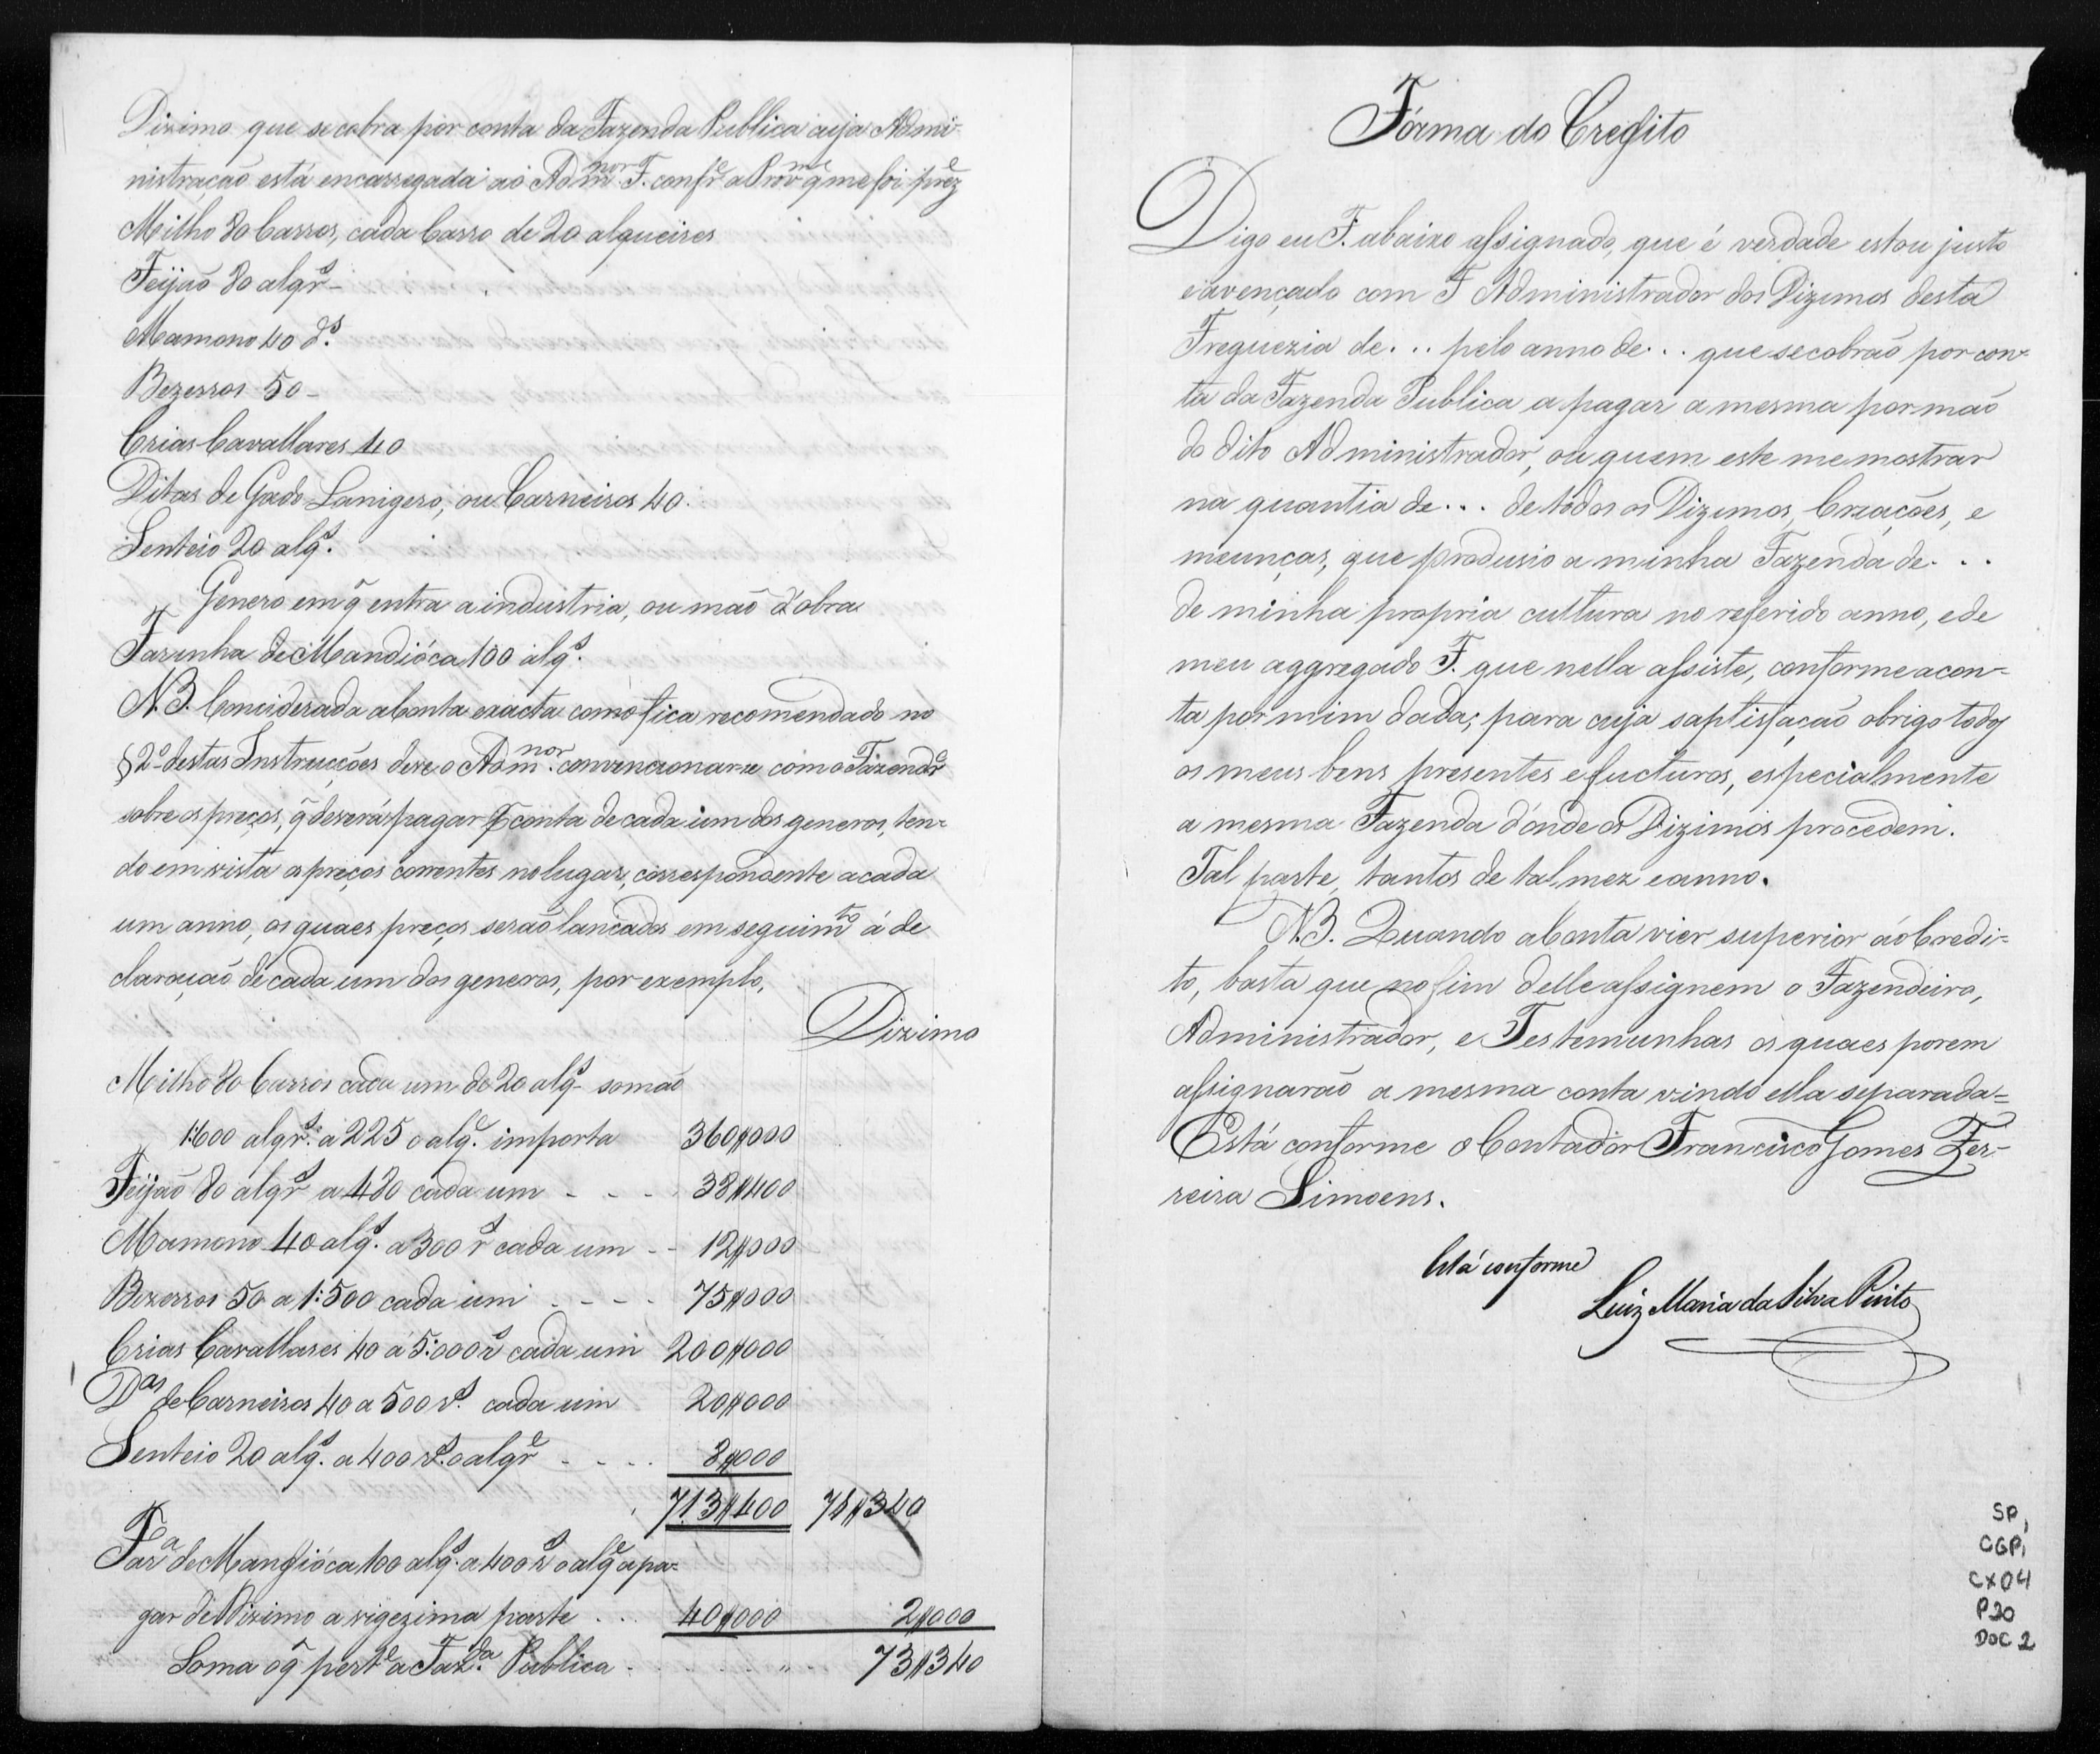 Dizimo que se cobra por conta da Fazenda Publica cuja Admi-
nistração está encarregada ao Adm.nor F. confe. a Prov q̃ me foi prez.e
Milho 80 Carros, cada Carro de 20 alqueires
Feijaõ 80 alqr.s
Mamono 40 d.s
Bezerros 50 -
Crias Cavallares 40
Ditas de Gado Lanigero, ou Carneiros 40.
Senteio 20 alq.s
Genero em q̃ entra a industria, ou maõ d'obra
Farinha de Mandióca 100 alq.s
N.B. Conciderada a Conta exacta como fica recomendado no
§ 2º destas Instrucções deve o Adm.nor convencionar-se com o Fazendr.o
sobre os preços, q̃ deverá pagar p conta de cada um dos generos, ten-
do em vista os preços correntes no lugar, correspondente a cada
um anno, os quaes preços seraõ lancados em seguim.to á de
claraçaõ de cada um dos generos, por exemplo,
Dizimo
Milho 80 Carros cada um de 20 alq.s somaõ
1:600 alqr.s a 225 o alq.e importa 360$000
Feijaõ 80 alqr.s a 480 cada um - - - 38$400
Mamono 40 alq.s a 300 r.s cada um - - 12$000
Bezerros 50 a 1:500 cada um - - - - 75$000
Crias Cavallares 40 á 5:000 r.s cada um 200$000
D.as de Carneiros 40 a 500 r.s cada um 20$000
Senteio 20 alq.s a 400 r.s o alqr.e - - - - 8$000
713$400 71$340
Far.a de Mandióca 100 alq.s a 400 r.s o alq.e a pa-
gar de Dizimo a vigezima parte . . . 40$000 2$000
Soma o q̃ pert.e a Faz.da Publica - - - - " - - 73$340
Fórma do Credito
Digo eu F. abaixo assignado, que é verdade estou justo
e avençado com F Administrador dos Dizimos desta
Freguezia de . . . pelo anno de . . . que se cobraõ por con-
ta da Fazenda Publica a pagar a mesma por maõ
do dito Administrador, ou quem este me mostrar
na quantia de . . . de todos os Dizimos, Creações, e
meunças, que produsio a minha Fazenda de . . .
de minha propria cultura no referido anno, e de
meu aggregado F. que nella assiste, conforme a con-
ta por mim dada; para cuja saptisfaçaõ obrigo todos
os meus bens presentes e fucturos, especialmente
a mesma Fazenda d'onde os Dizimos procedem.
Tal parte, tantos de tal mez e anno.
N.B. Quando a Conta vier superior ao Credi-
to, basta que no fim delle assignem o Fazendeiro,
Administrador, e Testemunhas os quaes porem
assignaraõ a mesma conta vindo ella separada=
Está conforme o Contador Francisco Gomes Fer-
reira Simoens.
Está conforme
Luiz Maria da Silva Pinto
SP,
CGP,
CX04
P20
DOC 2